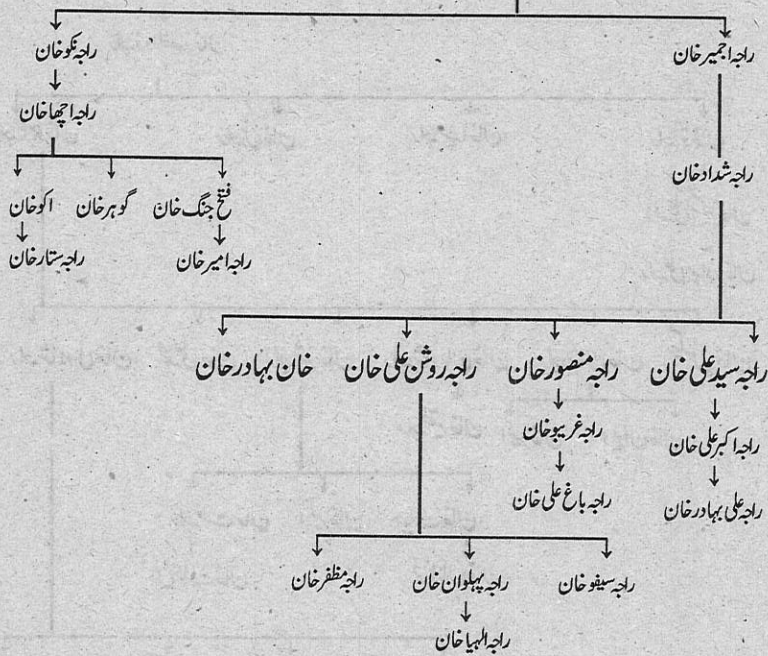 راجہ اجمیر خان
راجہ نکو خان
راجہ اچھا خان
راجہ شداد خان
فتح جنگ خان
گوہر خان
اکو خان
راجہ امیر خان
راجہ ستار خان
راجہ سید علی خان
راجہ منصور خان
راجہ روشن علی خان
خان بہادر خان
راجہ اکبر علی خان
راجہ غریبو خان
راجہ علی بہادر خان
راجہ باغ علی خان
راجہ سیفو خان
راجہ پہلوان خان
راجہ مظفر خان
راجہ الہیا خان